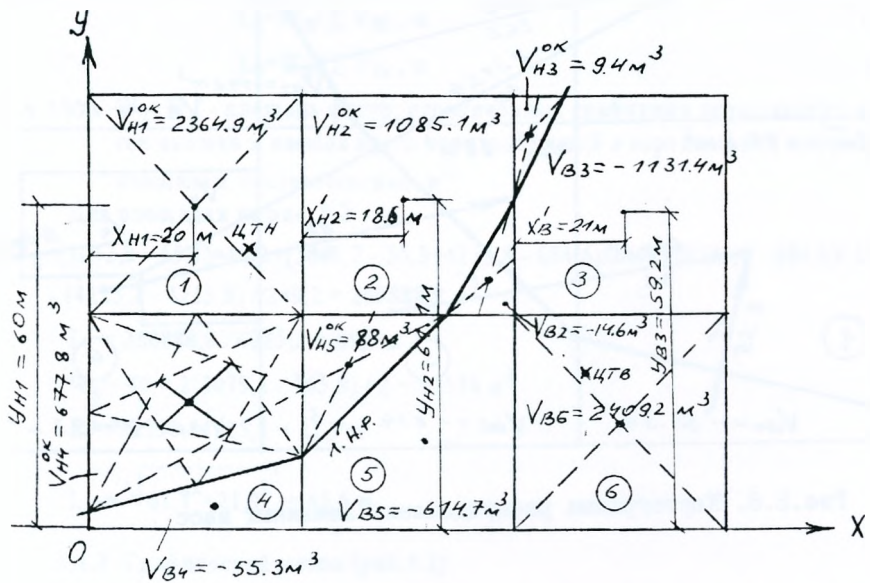 У
V_H3^ОК = 9.4 м³
V_H1^ОК = 2364.9 м³
V_H2^ОК = 1085.1 м³
V_B3 = -1131.4 м³
X_H1 = 20 м
X'_H2 = 18.6 м
X'_B = 21 м
ЦТН
1
2
3
У_H1 = 60 м
V_H4^ОК = 677.8 м³
V_H5^ОК = 88 м³
V_B2 = -14.6 м³
У_B3 = 59.2 м
ЦТВ
V_B6 = 2409.2 м³
Л.Н.Р.
4
5
6
V_B5 = -614.7 м³
0
X
V_B4 = -55.3 м³